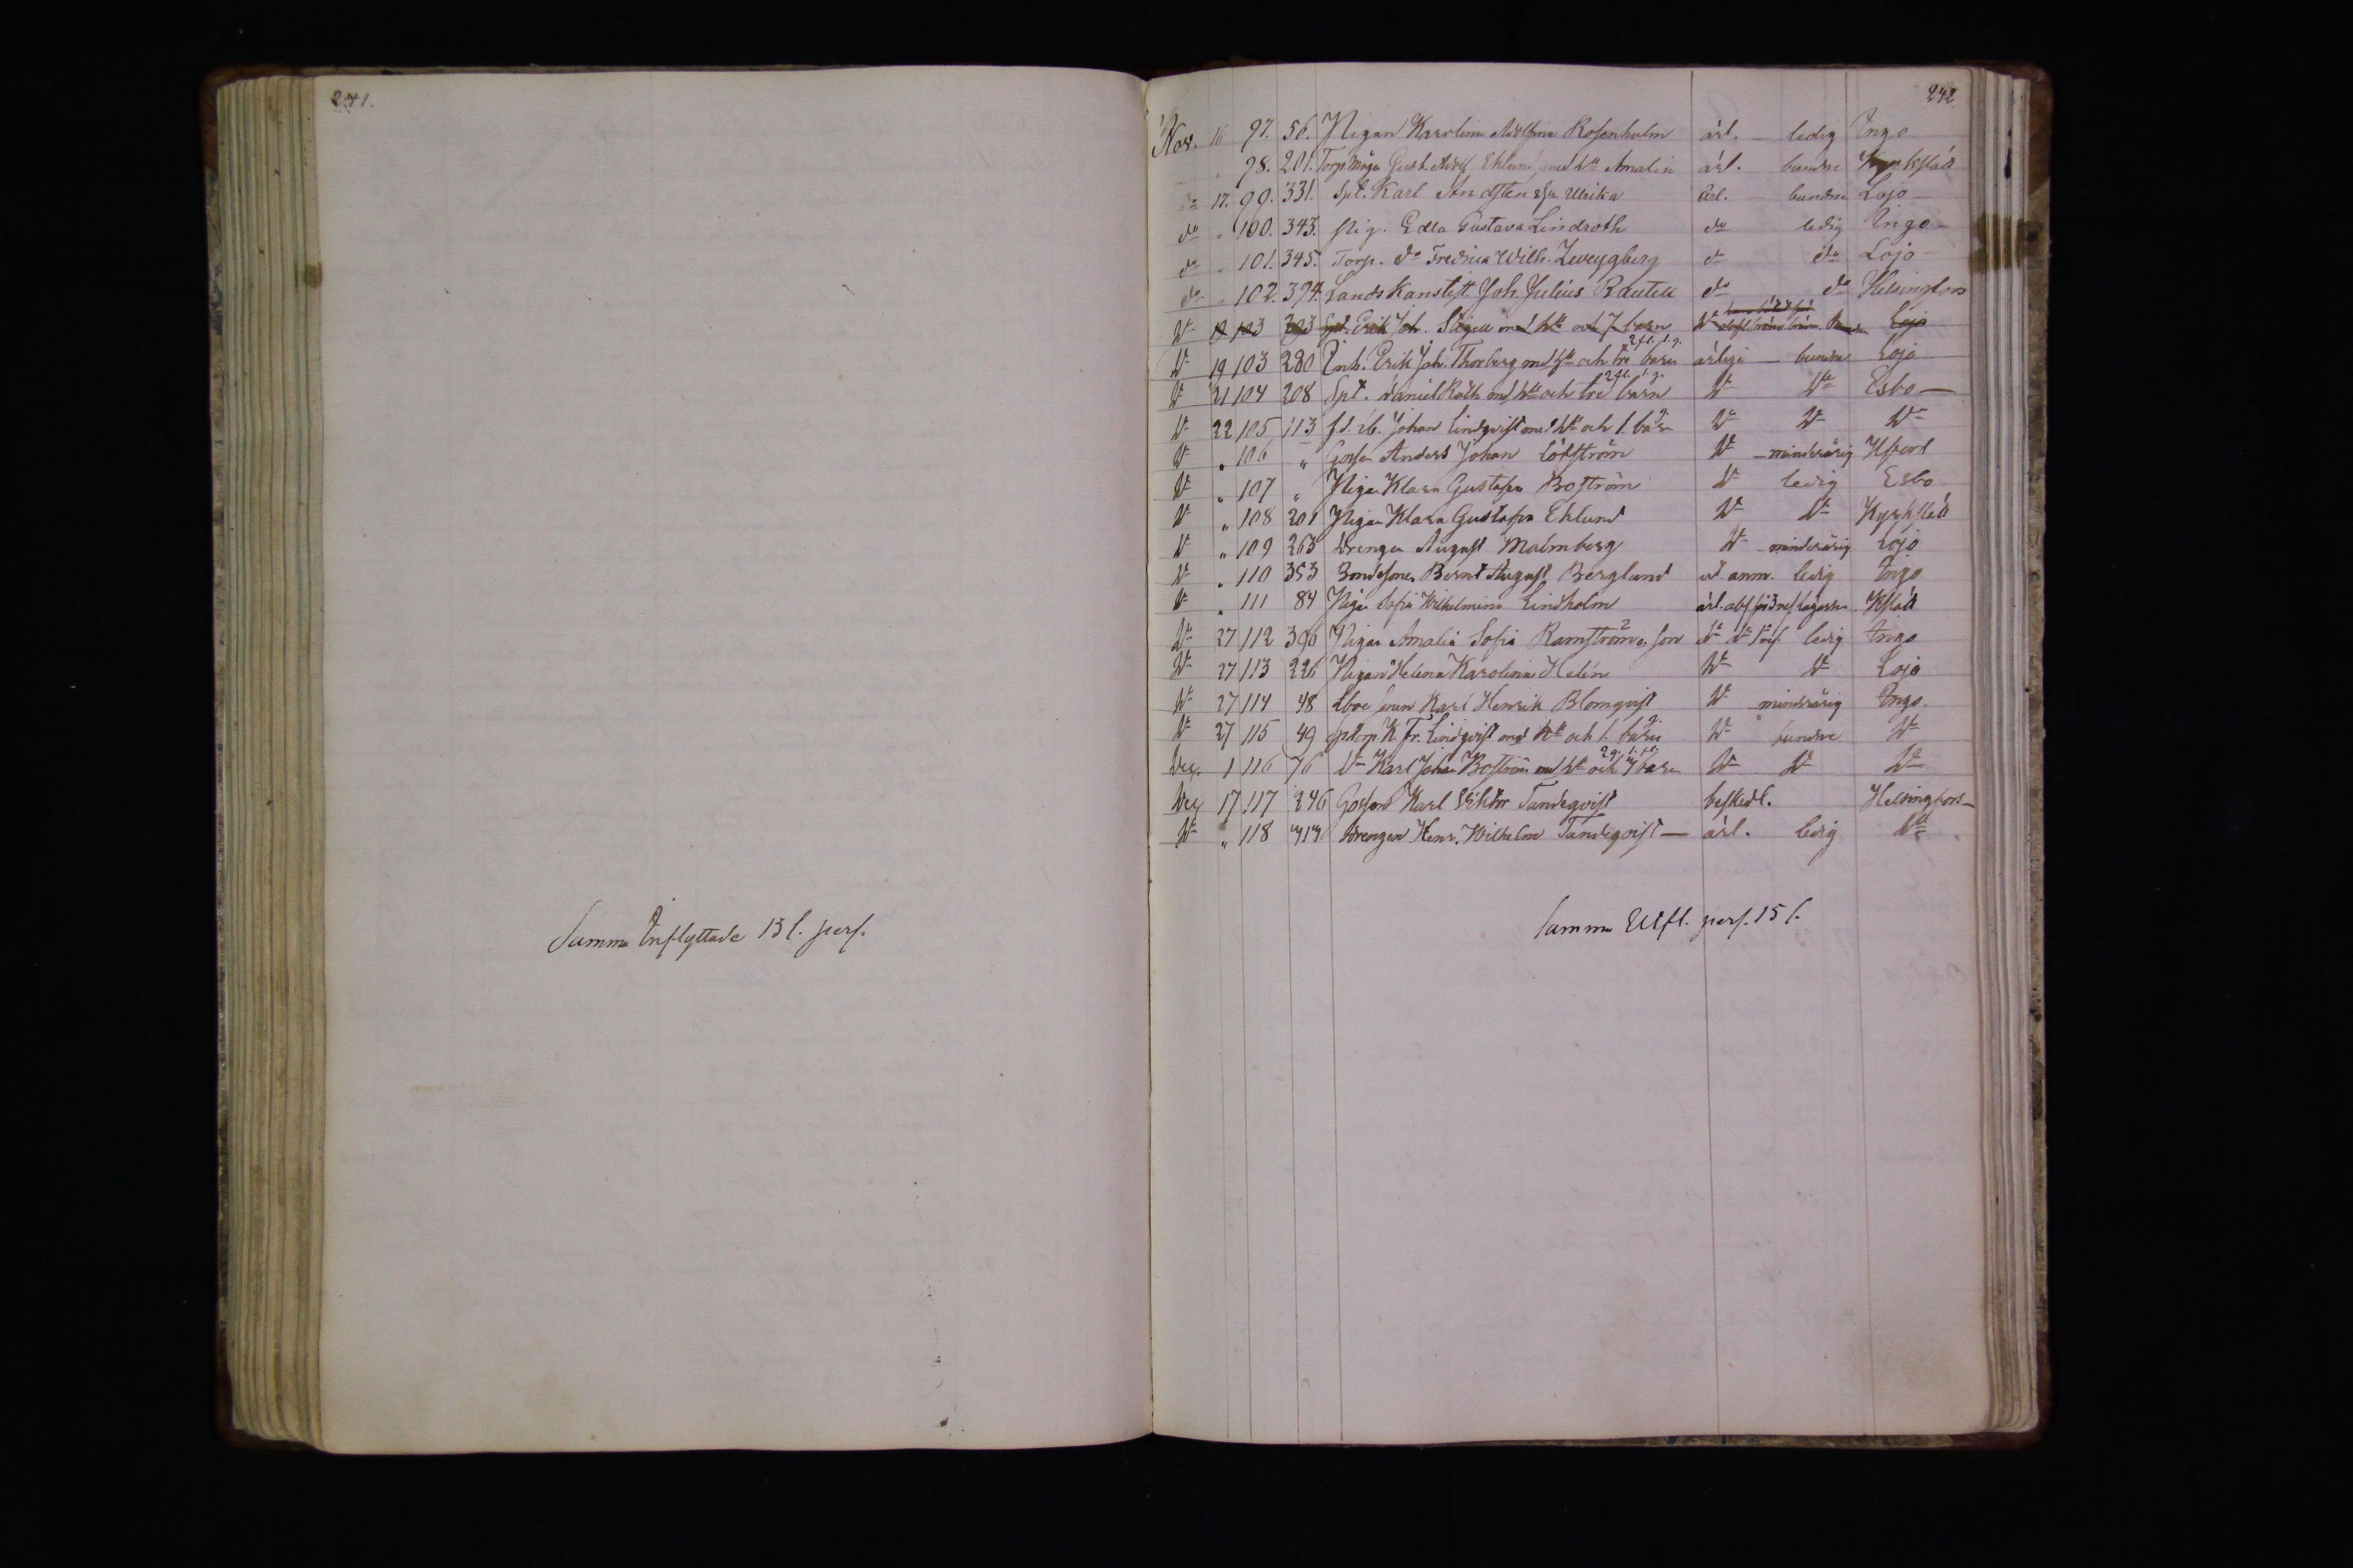 241.
Summa Inflyttade 131. pers.
242
Nov. 16 97. 56. Pigan Karolina Adolfina Rosenholm ärl. — ledig Ingo
" 98. 201. Torp.måg. Gust. Adolf Eklund med hu Amalia ärl. bunden Kyrkslätt
do 17. 99. 331. Spt. Karl Sandsten ehu Ulrika ärl. — bunden Lojo —
do " 100. 343. pig. Edla Gustava Lindroth do ledig Ingo —
do " 101. 345. Torp. do Fredrica Wilh. Zweygberg do do Lojo —
do " 102. 394. Landskanslist Joh. Julius Rautell do do Helsingfors
Do 103 Erik Joh. med hu och 7 barn Lojo
Do 19 103 280 Inh. Erik Joh. Thorberg med hu och tre barn 2 fl. 1 g. ärliga — bundne Lojo
Do 21 104 208 Spt. Daniel Roth med hu och tre barn 2 fl. 1 g. Do Do Esbo —
Do 22 105 113 Johan Lindqvist med hu och 1. barn g. Do Do Do
Do " 106 " Gossen Anders Johan Löfström Do — minderårig Hfors
Do " 107 " Pigan Klara Gustafva Boström Do ledig Esbo
Do " 108 201 Pigan Klara Gustafva Eklund Do Do Kyrkslätt
Do " 109 263 Drengen August Malmberg Do — minderårig Lojo
Do " 110 353 Bondesonen Bernt August Berglund ut. anm. ledig Ingo
Do " 111 84 Pigan Sofia Wilhelmina Lindholm ärl. Kslätt
Do 27 112 306 Pigan Amalia Sofia Ramström o. son 2 Do Do ledig Ingo
Do 27 113 226 Pigan Helena Karolina Helén Do Do Lojo
Do 27 114 48 sonen Karl Henrik Blomqvist Do minderårig Ingo.
Do 27 115 49 K. Fr. Lindqvist med hu och 1. barn g. Do bundne Do
Dec. 1 116 76 Do Karl Johan Boström med hu och barn Do Do Do
Dec. 17 117 246 Gossen Karl Viktor Tandeqvist beskedl. Helsingfors —
Do " 118 414 Drengen Henr. Wilhelm Tandeqvist — ärl. ledig Do
Summa Utfl. pers. 151.